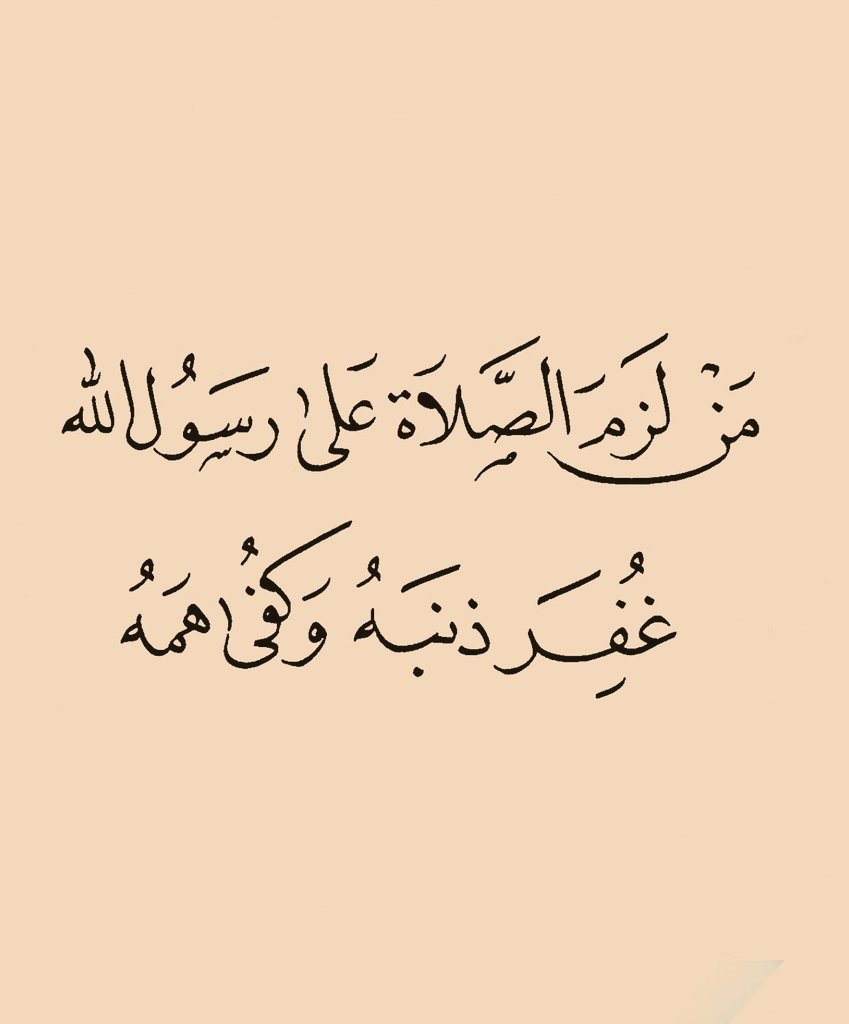 مَنْ لَزِمَ الصَّلاَةَ عَلى رَسُولِ الله
غُفِرَ ذَنبَهُ وَكُفى هَمَهُ